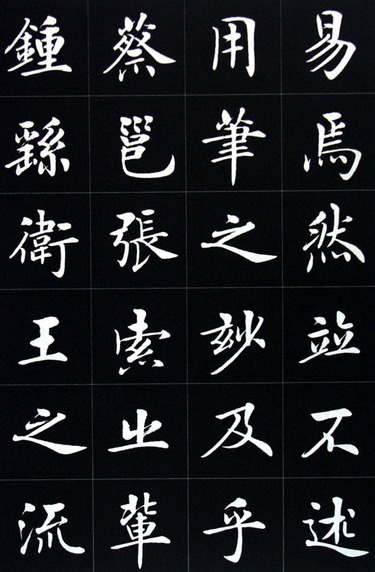 易焉然竝不述
用筆之玅及乎
蔡邕張索之輩
鍾繇衛王之流